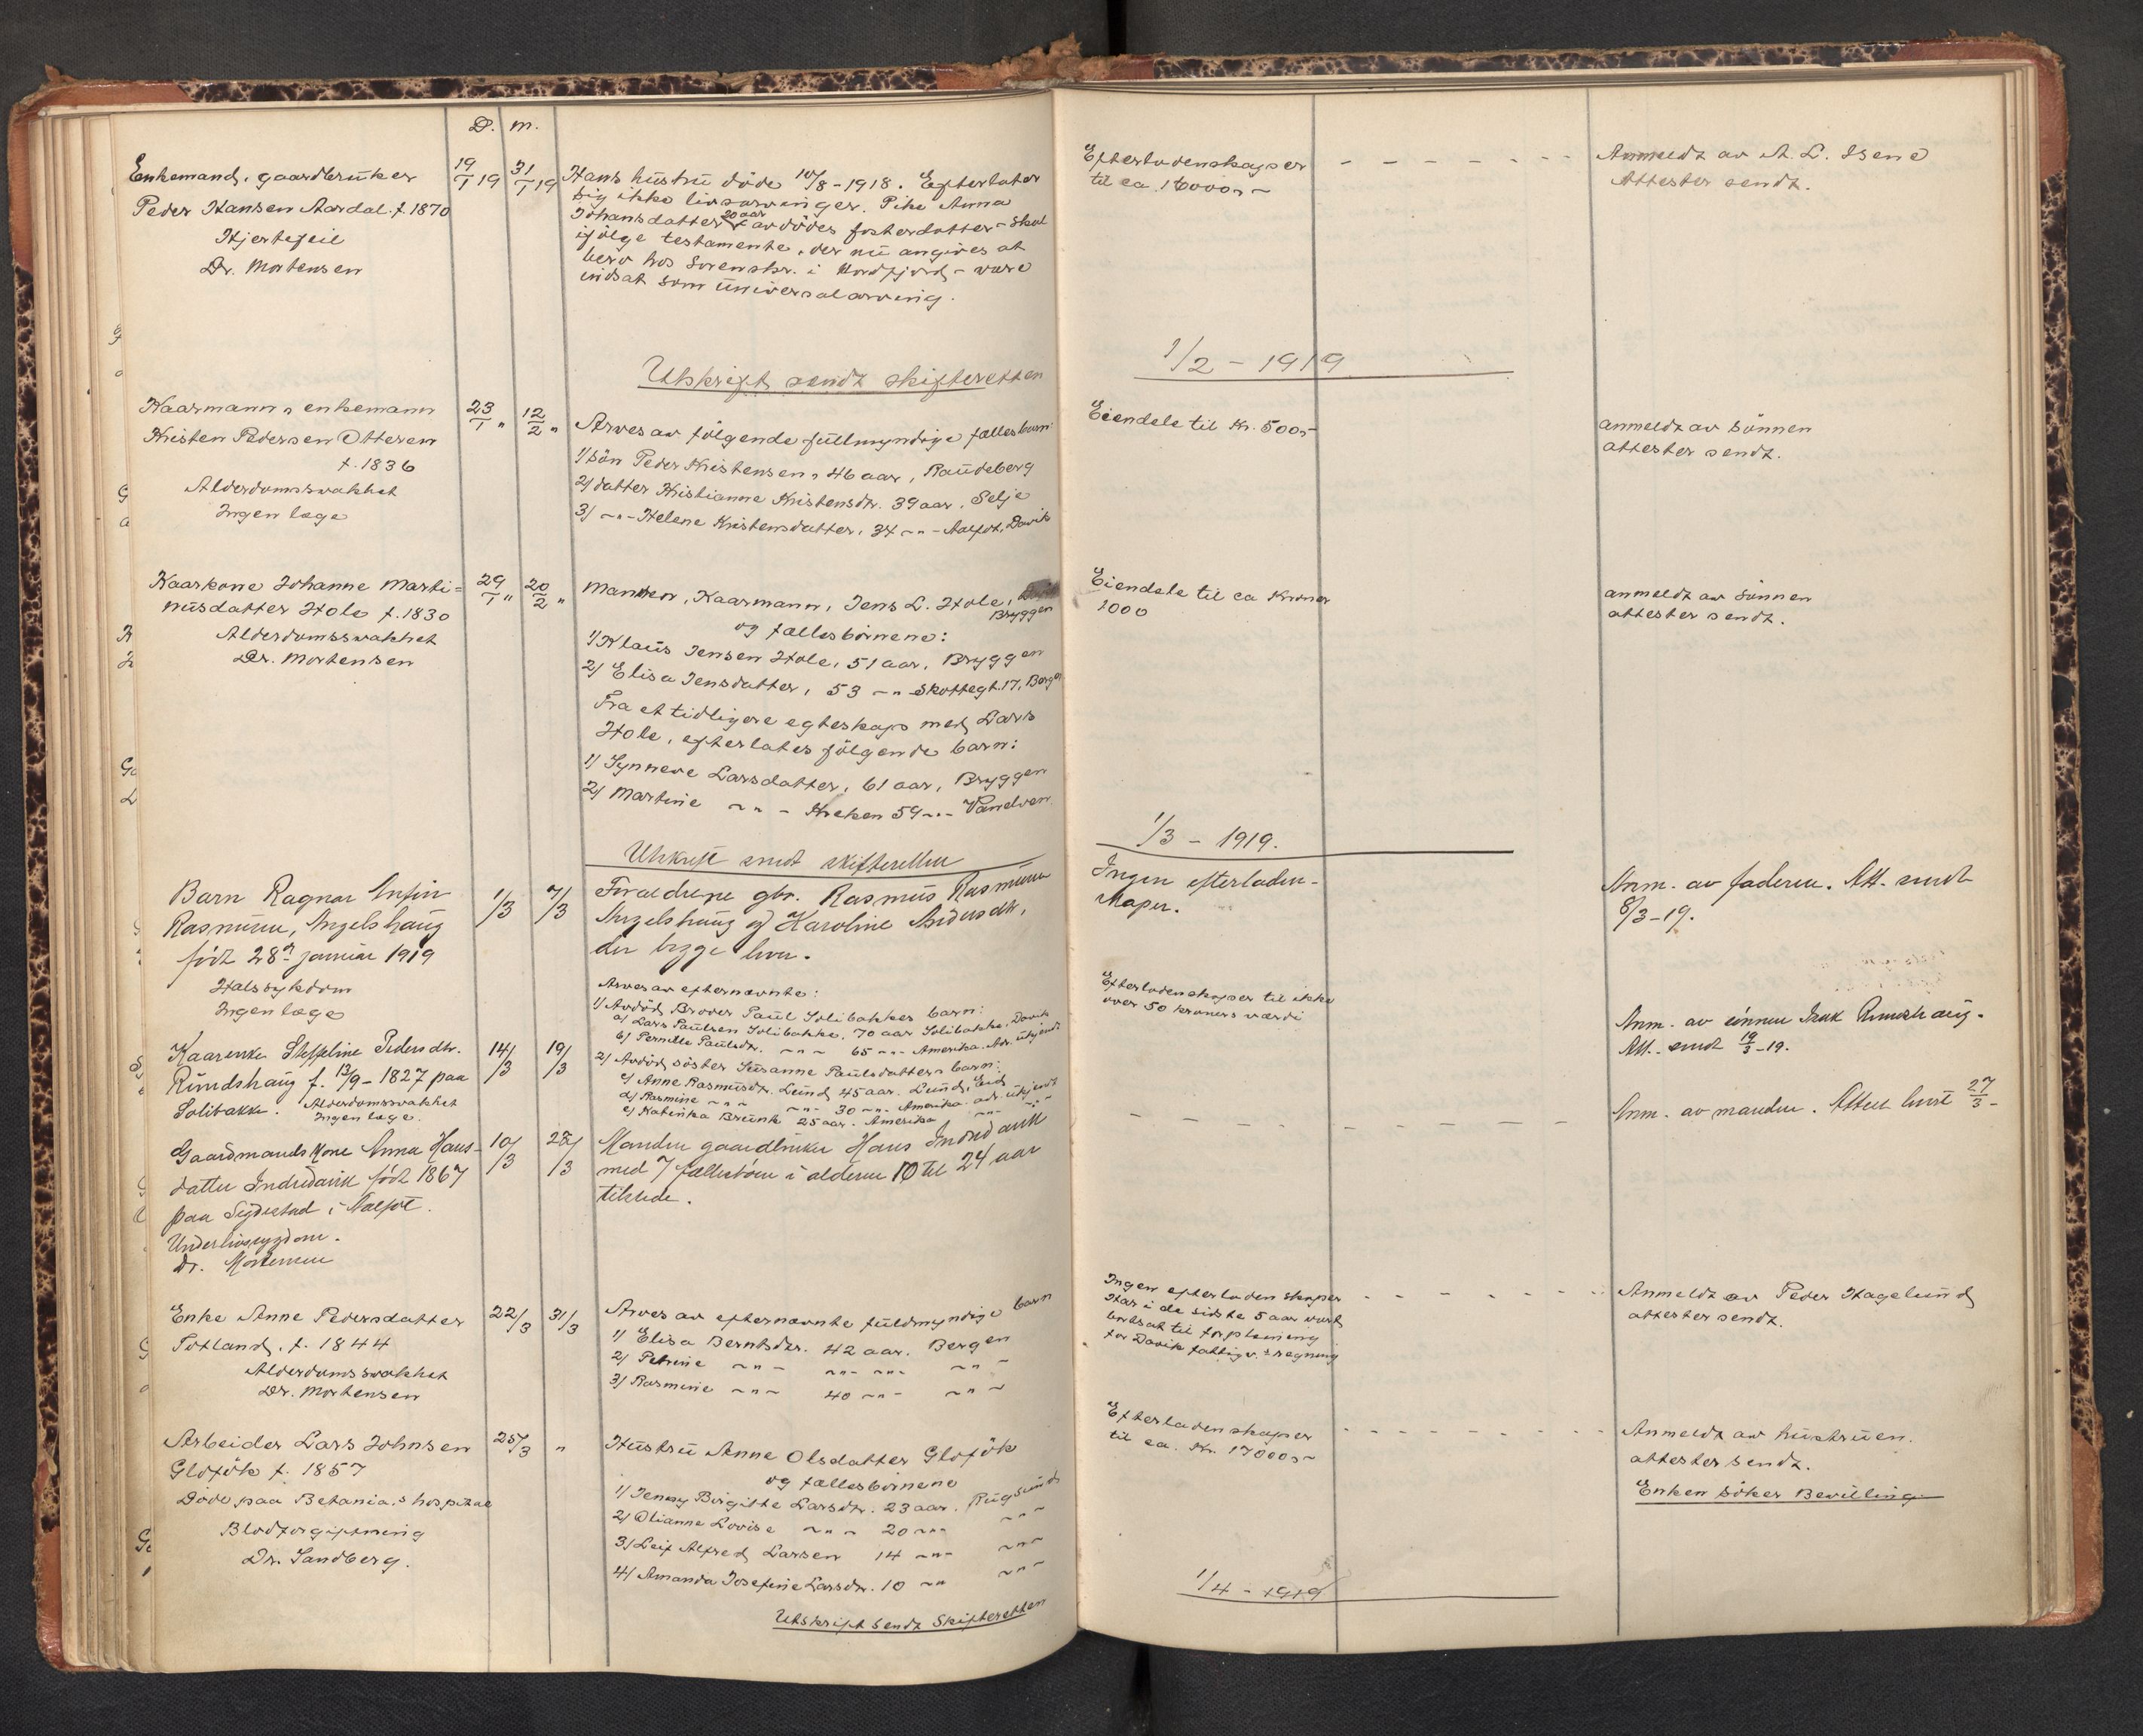 D. m.
Enkemand, gaardbruker
Peder Hansen Aardal. f. 1870
Hjertefeil
Dr. Mortensen
19/1 19
31/1 19
Hans hustru döde 10/8 - 1918. Efterlater
sig ikke livsarvinger. Pike Anna
Johansdatter 20 aar avdödes fosterdatter - skal
ifölge testamente, der nu angives at
bero hos Sorenskr. i Nordfjord - være
indsat som universalarving.
Efterladenskaper
til ca. 16000,-
Anmeldt av A. L. Isene
Attester sendt.
Utskrift sendt skifteretten
1/2 - 1919
Kaarmann, enkemann
Kristen Pedersen Otteren
f. 1836
Alderdomssvakhet
Ingen læge
23/1 "
12/2 "
Arves av fölgende fullmyndige fælles barn:
1/ Sön Peder Kristensen, 46 aar, Raudeberg
2/ datter Kristianne Kristensdtr. 39 aar, Selje
3/ -"- Helene Kristensdatter, 34 -"- Aalfot, Davik
Eiendele til Kr. 500,-
anmeldt av Sönnen
attester sendt.
Kaarkone Johanne Marti=
nusdatter Hole f. 1830
Alderdomssvakhet
Dr. Mortensen
29/1 "
20/2 "
Manden, Kaarmann, Jens L. Hole,
Bryggen
og fællesbörnene:
1/ Klaus Jensen Hole, 51 aar, Bryggen
2/ Elisa Jensdatter, 53 -"- Skottegt. 17, Bergen
Fra et tidligere egteskap med Lars
Hole, efterlates fölgende barn:
1/ Synneve Larsdatter, 61 aar, Bryggen
2/ Martine -"- 59 -"- Vanelven
Eiendele til ca Kroner
1000
anmeldt av Sönnen
attester sendt.
Utskrift sendt skifteretten
1/3 - 1919.
Barn Ragnar
Rasmussen, Angelshaug
född 28de januar 1919
Halssykdom
Ingen læge
1/3
7/3
Forældrene gbr. Rasmus Rasmussen
Angelshaug og Karoline Andersdtr,
der begge lever.
Ingen efterladen-
skaper.
Anm. av faderen. Att. sendt
8/3 - 19.
Kaarenke Steffeline Pedersdtr.
Rundshaug f. 13/9 - 1827 paa
Solibakke. Alderdomssvakhet
Ingen læge.
14/3
19/3
Arves av efternævnte:
1/ Avdöd Broder Paul Solibakkes barn:
a/ Lars Paulsen Solibakke, 70 aar Solibakke, Davik
b/ Pernille Paulsdtr. -"- 65 -"- Amerika. Adr. ukjendt
2/ Avdöd söster Susanne Paulsdatters barn:
c/ Anne Rasmusdtr. Lund 45 aar. Lund, Eid
d/ Rasmine -"- -"- 30 -"- Amerika. adr. ukjendt
e/ Katinka Brunk 25 aar. Amerika -"- -"-
Efterladenskaper til ikke
over 50 kroners værdi
Anm. av sönnen Isak Rundshaug.
Att. sendt 19/3 - 19.
Gaardmandskone Anna Hans-
datter Indredavik född 1867
paa Sigdestad i Aalfot.
Underlivssygdom.
Dr. Mortensen
10/3
27/3
Manden gaardbruker Hans Indredavik
med 7 fællesbörn i alderen 10 til 24 aar
tilstede.
Anm. av manden. Attest 27/3 -
Enke Anne Pedersdatter
Totland, f. 1844
Alderdomssvakhet
Dr. Mortensen
22/3
31/3
Arves av efternævnte fuldmyndige barn
1/ Elisa Berntsdtr. 42 aar. Bergen
2/ Petrine -"- -"- -"- -"-
3/ Rasmine -"- 40 -"- -"-
Ingen efterladenskaper
Har i de sidste 5 aar vært
bortsat til forpleining
for Davik fattigv.s regning
Anmeldt av Peder Hagelund
attester sendt.
Arbeider Lars Johnsen
Glofök f. 1857
Döde paa Betania,s hospital
Blodforgiftning
Dr. Sandberg.
25/3
"
Hustru Anne Olsdatter Glofök
og fællesbörnene
1/ Jenny Birgitte Larsdtr. 23 aar. Rugsund
2/ Olianne Lovise -"- 20 -"- -"-
3/ Leif Alfred Larsen 14 -"- -"-
4/ Amanda Josefine Larsdtr. 10 -"- -"-
Efterladenskaper
til ca. Kr. 17000,-
Anmeldt av hustruen.
attester sendt.
Enken söker Bevilling
Utskrift sendt Skifteretten
1/4 - 1919